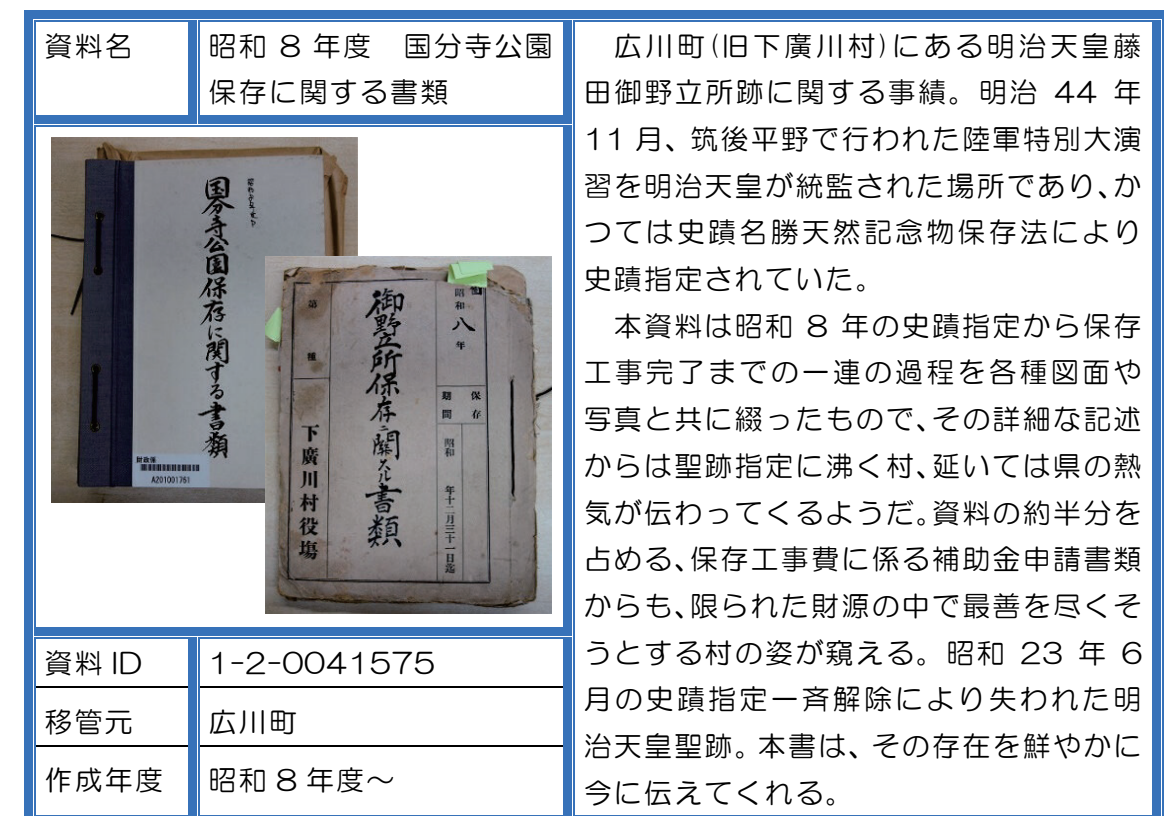 資料名
昭和 8 年度　国分寺公園
保存に関する書類
国分寺公園保存に関する書類
財政係
AZ01001761
昭和八年
保存期間
昭和 年十二月三十一日迄
御野立所保存ニ關スル書類
第 種
下廣川村役場
資料 ID
1-2-0041575
移管元
広川町
作成年度
昭和 8 年度～
広川町(旧下廣川村)にある明治天皇藤
田御野立所跡に関する事績。明治 44 年
11 月、筑後平野で行われた陸軍特別大演
習を明治天皇が統監された場所であり、か
つては史蹟名勝天然記念物保存法により
史蹟指定されていた。
本資料は昭和 8 年の史蹟指定から保存
工事完了までの一連の過程を各種図面や
写真と共に綴ったもので、その詳細な記述
からは聖跡指定に沸く村、延いては県の熱
気が伝わってくるようだ。資料の約半分を
占める、保存工事費に係る補助金申請書類
からも、限られた財源の中で最善を尽くそ
うとする村の姿が窺える。昭和 23 年 6
月の史蹟指定一斉解除により失われた明
治天皇聖跡。本書は、その存在を鮮やかに
今に伝えてくれる。